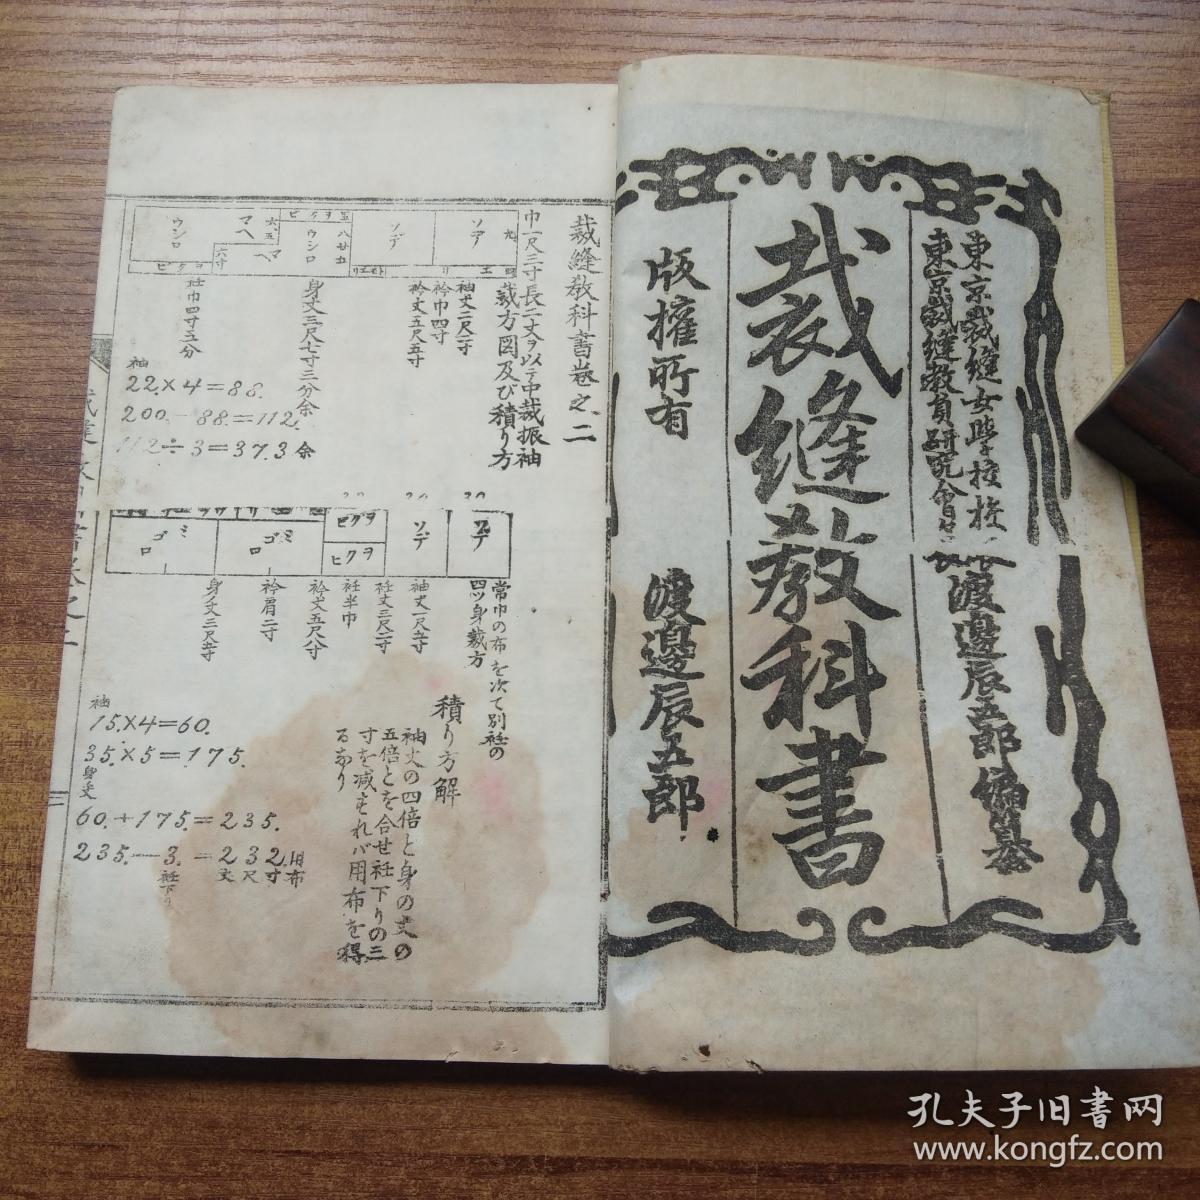 東京裁縫女學校校長
東京裁縫教員研究會會長
渡邊辰五郎編纂
裁縫教科書
版權所有
渡邊辰五郎
裁縫教科書卷之二
巾一尺三寸長二丈ヲ以テ中裁振袖
裁方図及び積り方
ソデ
ソデ
ウシロ
マヘ
マヘ
ウシロ
袖丈二尺二寸
衿巾四寸
衿丈五尺五寸
身丈三尺七寸三分余
衽巾四寸五分
袖
22.×4=88.
200.-88.=112.
112÷3=37.3余
ソデ
ソデ
ヲクヒ
ヲクヒ
ミゴロ
ミゴロ
常巾の布を次て別衽の
四ツ身裁方
袖丈一尺五寸
衽丈三尺二寸
衽半巾
衿丈五尺八寸
衿肩二寸
身丈三尺五寸
積り方解
袖丈の四倍と身の丈の
五倍とを合せ衽下りの三
寸を減ずれバ用布を得
るなり
袖
15.×4=60.
35.×5=175.
身丈
60.+175.=235.
235.-3.=232.用布
衽下り
丈尺寸
孔夫子旧书网
www.kongfz.com